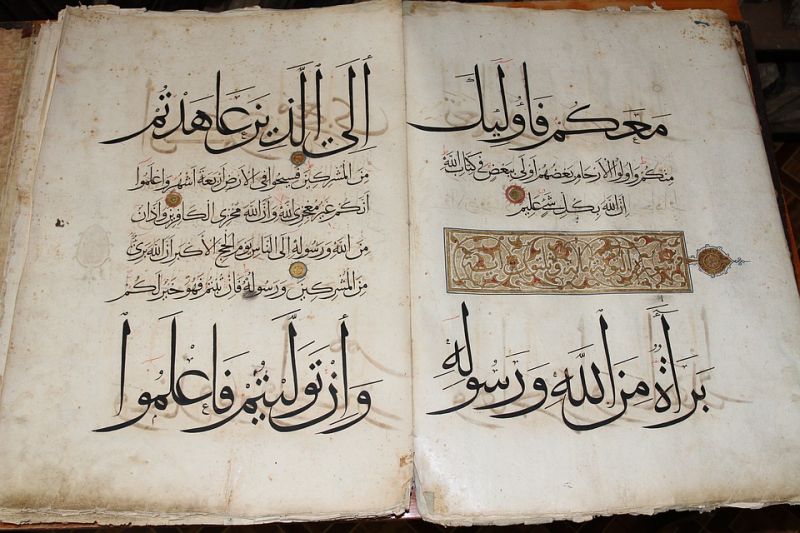 مَعَكُمْ فَأُوْلَٰئِكَ
مِنكُمْ وَأُولُوا الْأَرْحَامِ بَعْضُهُمْ أَوْلَى بِبَعْضٍ فِي كِتَابِ اللَّهِ
إِنَّ اللَّهَ بِكُلِّ شَيْءٍ عَلِيمٌ
سورة التوبة مائة
بَرَآءَةٌ مِنَ اللَّهِ وَرَسُولِهِ
إِلَى الَّذِينَ عَاهَدْتُمْ
مِنَ الْمُشْرِكِينَ فَسِيحُوا فِي الْأَرْضِ أَرْبَعَةَ أَشْهُرٍ وَاعْلَمُوا
أَنَّكُمْ غَيْرُ مُعْجِزِي اللَّهِ وَأَنَّ اللَّهَ مُخْزِي الْكَافِرِينَ وَأَذَانٌ
مِنَ اللَّهِ وَرَسُولِهِ إِلَى النَّاسِ يَوْمَ الْحَجِّ الْأَكْبَرِ أَنَّ اللَّهَ بَرِيءٌ
مِنَ الْمُشْرِكِينَ وَرَسُولُهُ فَإِنْ تُبْتُمْ فَهُوَ خَيْرٌ لَكُمْ
وَإِنْ تَوَلَّيْتُمْ فَاعْلَمُوا